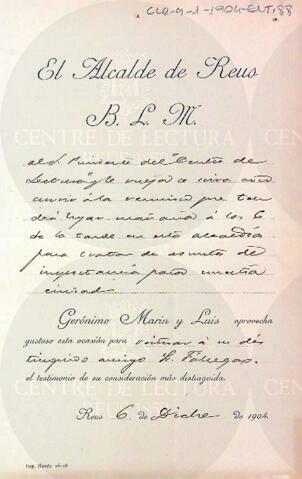 CLR-4-1-1904-ENT, 88
El Alcalde de Reus
B. L. M.
al S. Presidente del "Centro de
Lectura" y le ruega se sirva
á la reunion que ten
drá lugar mañana á las 6
de la tarde en esta alcaldía
para tratar de asunto de
importancia para nuestra
ciudad
Gerónimo Marín y Luis aprovecha
gustoso esta ocasión para reiterar á su dis
tinguido amigo Sr.
el testimonio de su consideración más distinguida.
Reus 6 de Dicbre de 1904
CENTRE DE LECTURA